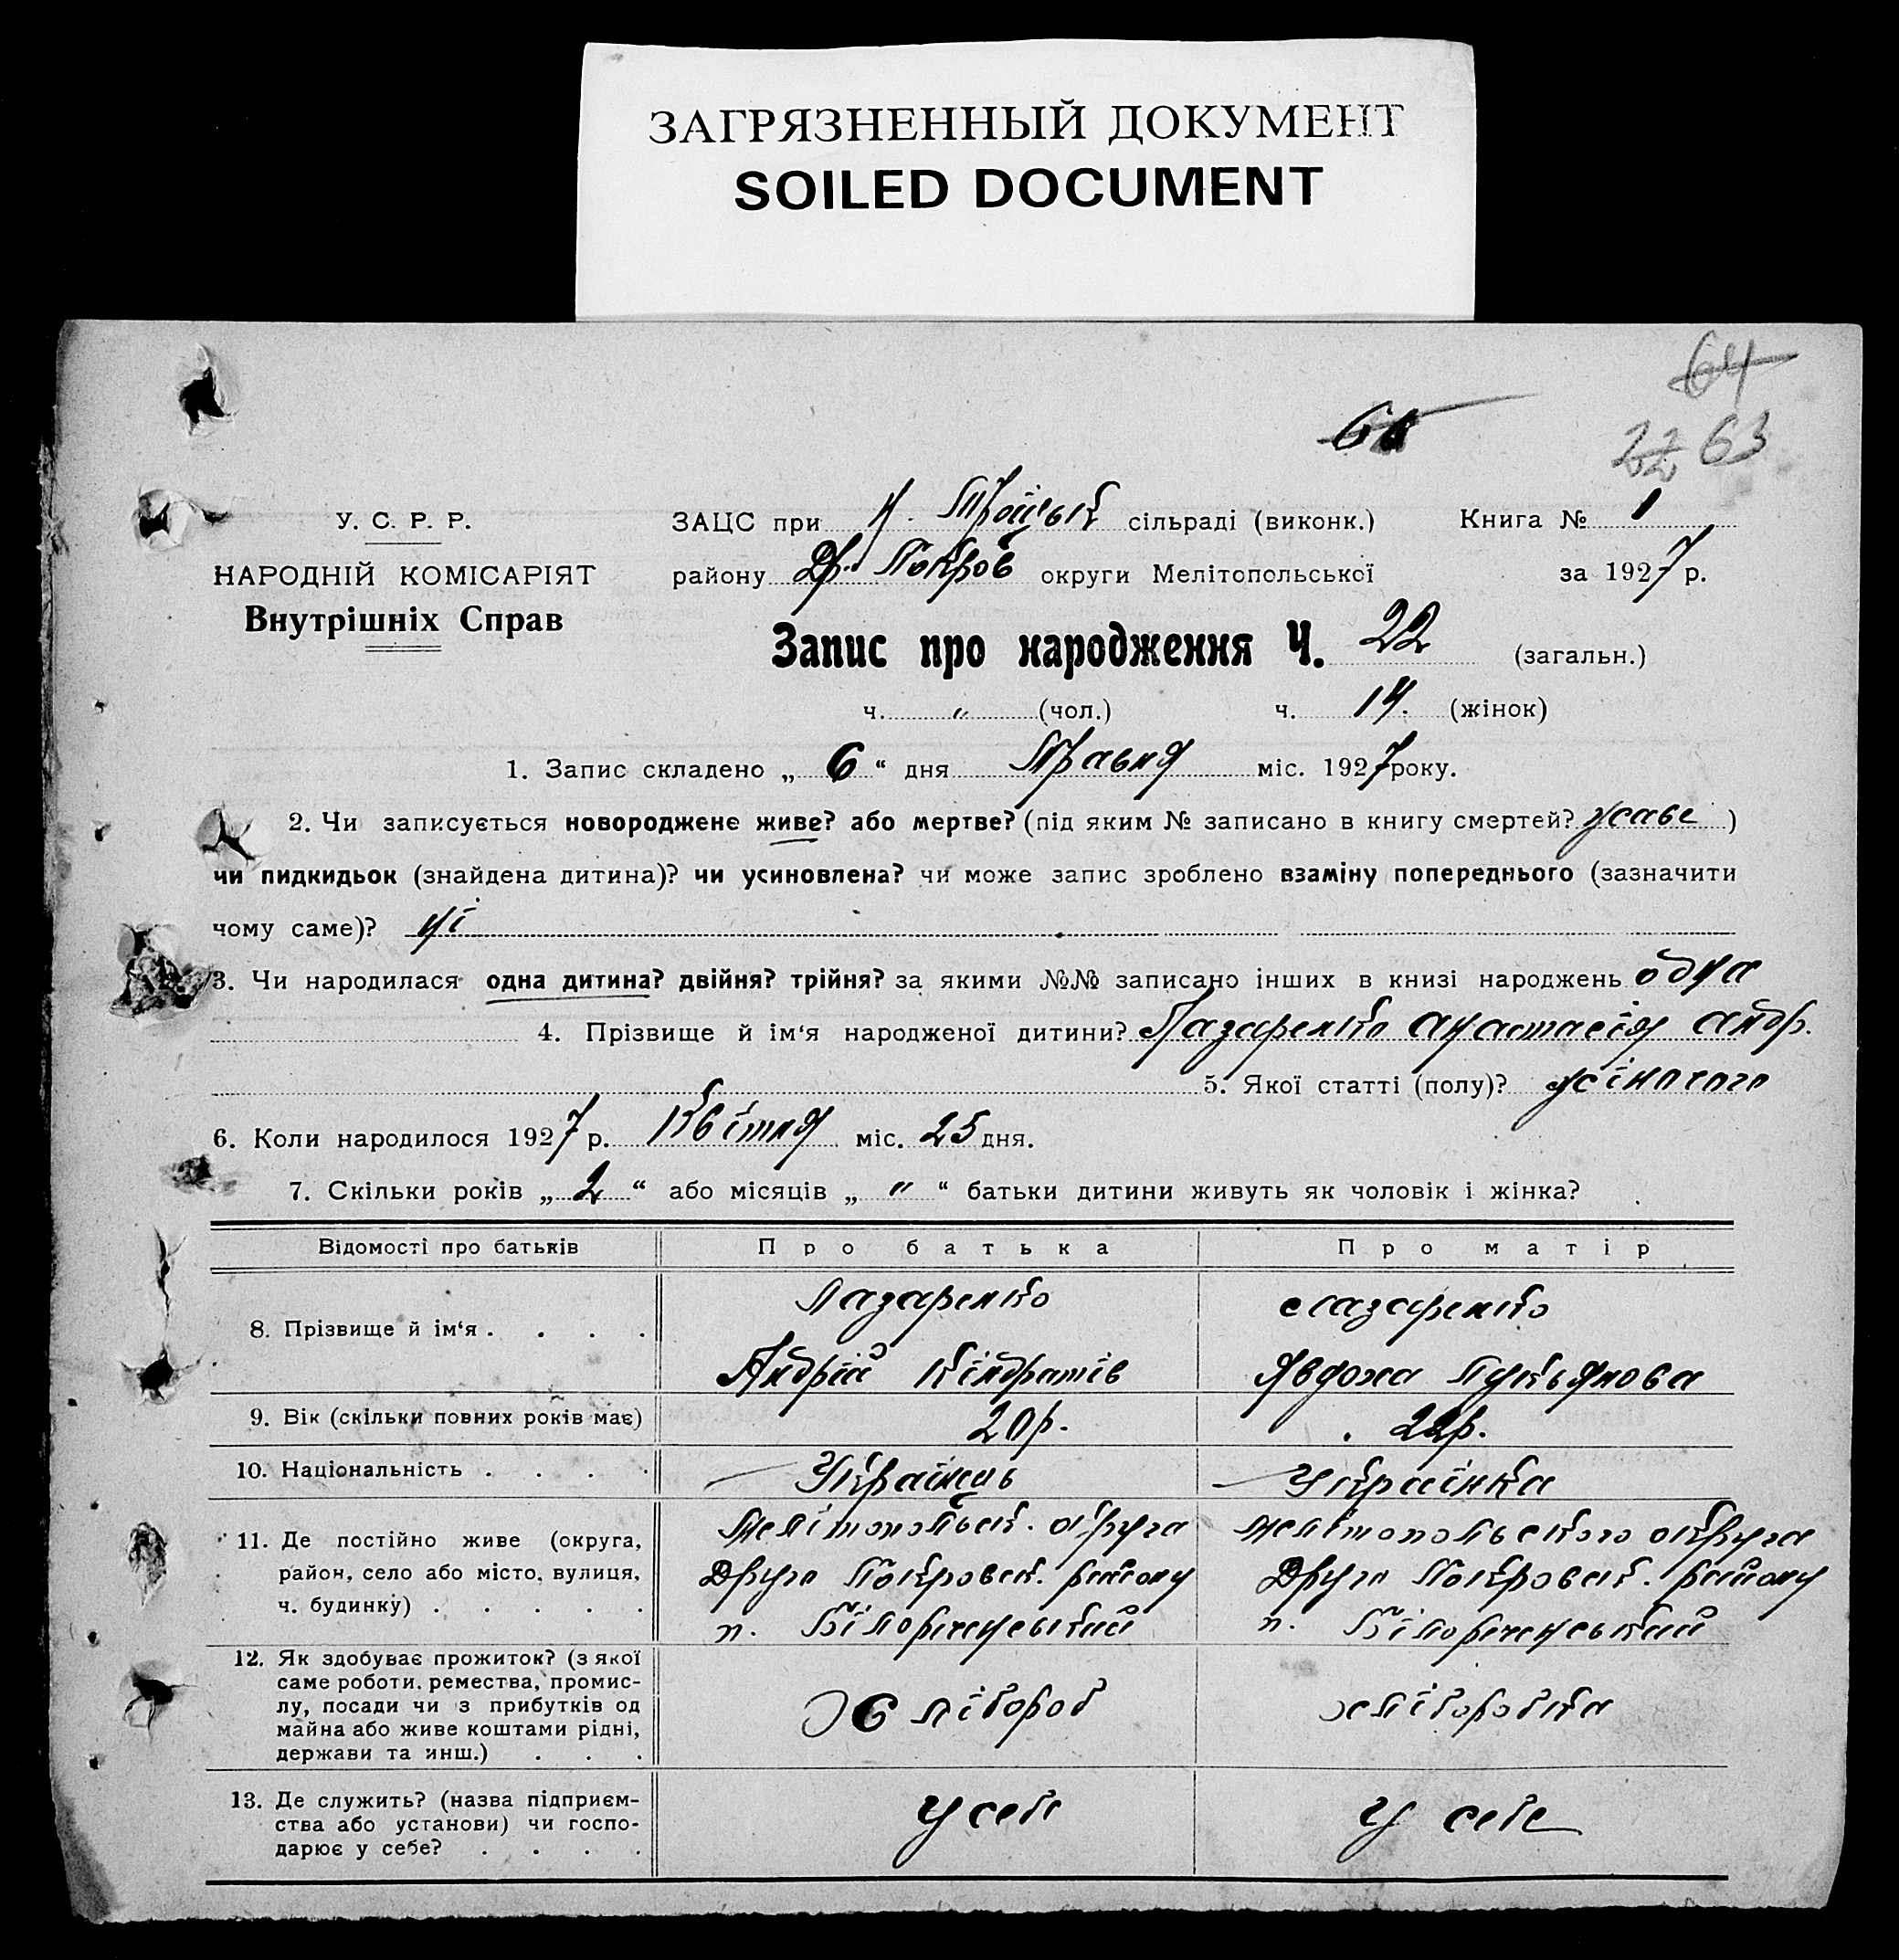 ЗАГРЯЗНЕННЫЙ ДОКУМЕНТ
SOILED DOCUMENT
64
22 63
У. С. Р. Р.
НАРОДНІЙ КОМІСАРІЯТ
Внутрішніх Справ
ЗАЦС при Н. Троїцьк сільраді (виконк.) Книга № 1
району Др. Покров округи Мелітопольської за 1927 р.
Запис про народження Ч. 22 (загальн.)
ч. " (чол.) ч. 14. (жінок)
1. Запис складено „ 6 “ дня Травня міс. 1927 року.
2. Чи записується новороджене живе? або мертве? (під яким № записано в книгу смертей? живе )
чи пидкидьок (знайдена дитина)? чи усиновлена? чи може запис зроблено взаміну попереднього (зазначити
чому саме)? ні
3. Чи народилася одна дитина? двійня? трійня? за якими №№ записано інших в книзі народжень одна
4. Прізвище й ім‘я народженої дитини? Лазаренко Анастасія Андр.
5. Якої статті (полу)? жіночого
6. Коли народилося 1927 р. Квітня міс. 25 дня.
7. Скільки років „ 2 “ або місяців „ " “ батьки дитини живуть як чоловік і жінка?
Відомості про батьків Про батька Про матір
8. Прізвище й ім‘я . . . . Лазаренко Андрій Кіндратів Лазаренко Явдоха Лукьянова
9. Вік (скільки повних років має) 20 р. 22 р.
10. Національність . . . . Українець Українка
11. Де постійно живе (округа, Мелітопольськ. округа Мелітопольского округа
район, село або місто, вулиця, Друго Покровськ. району Друго Покровськ. району
ч. будинку) . . . . . п. Білоріченський п. Білоріченський
12. Як здобуває прожиток? (з якої
саме роботи, ремества, промис-
лу, посади чи з прибутків од Хлібороб хліборобка
майна або живе коштами рідні,
держави та инш.) . . .
13. Де служить? (назва підприєм-
ства або установи) чи госпо- У себе У себе
дарює у себе? . . . .